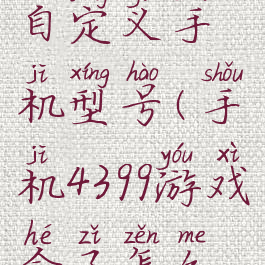 自定义手
jī xíng hào shǒu
机型号(手
jī yóu xì
机4399游戏
hé zǐ zěn me
盒子怎么